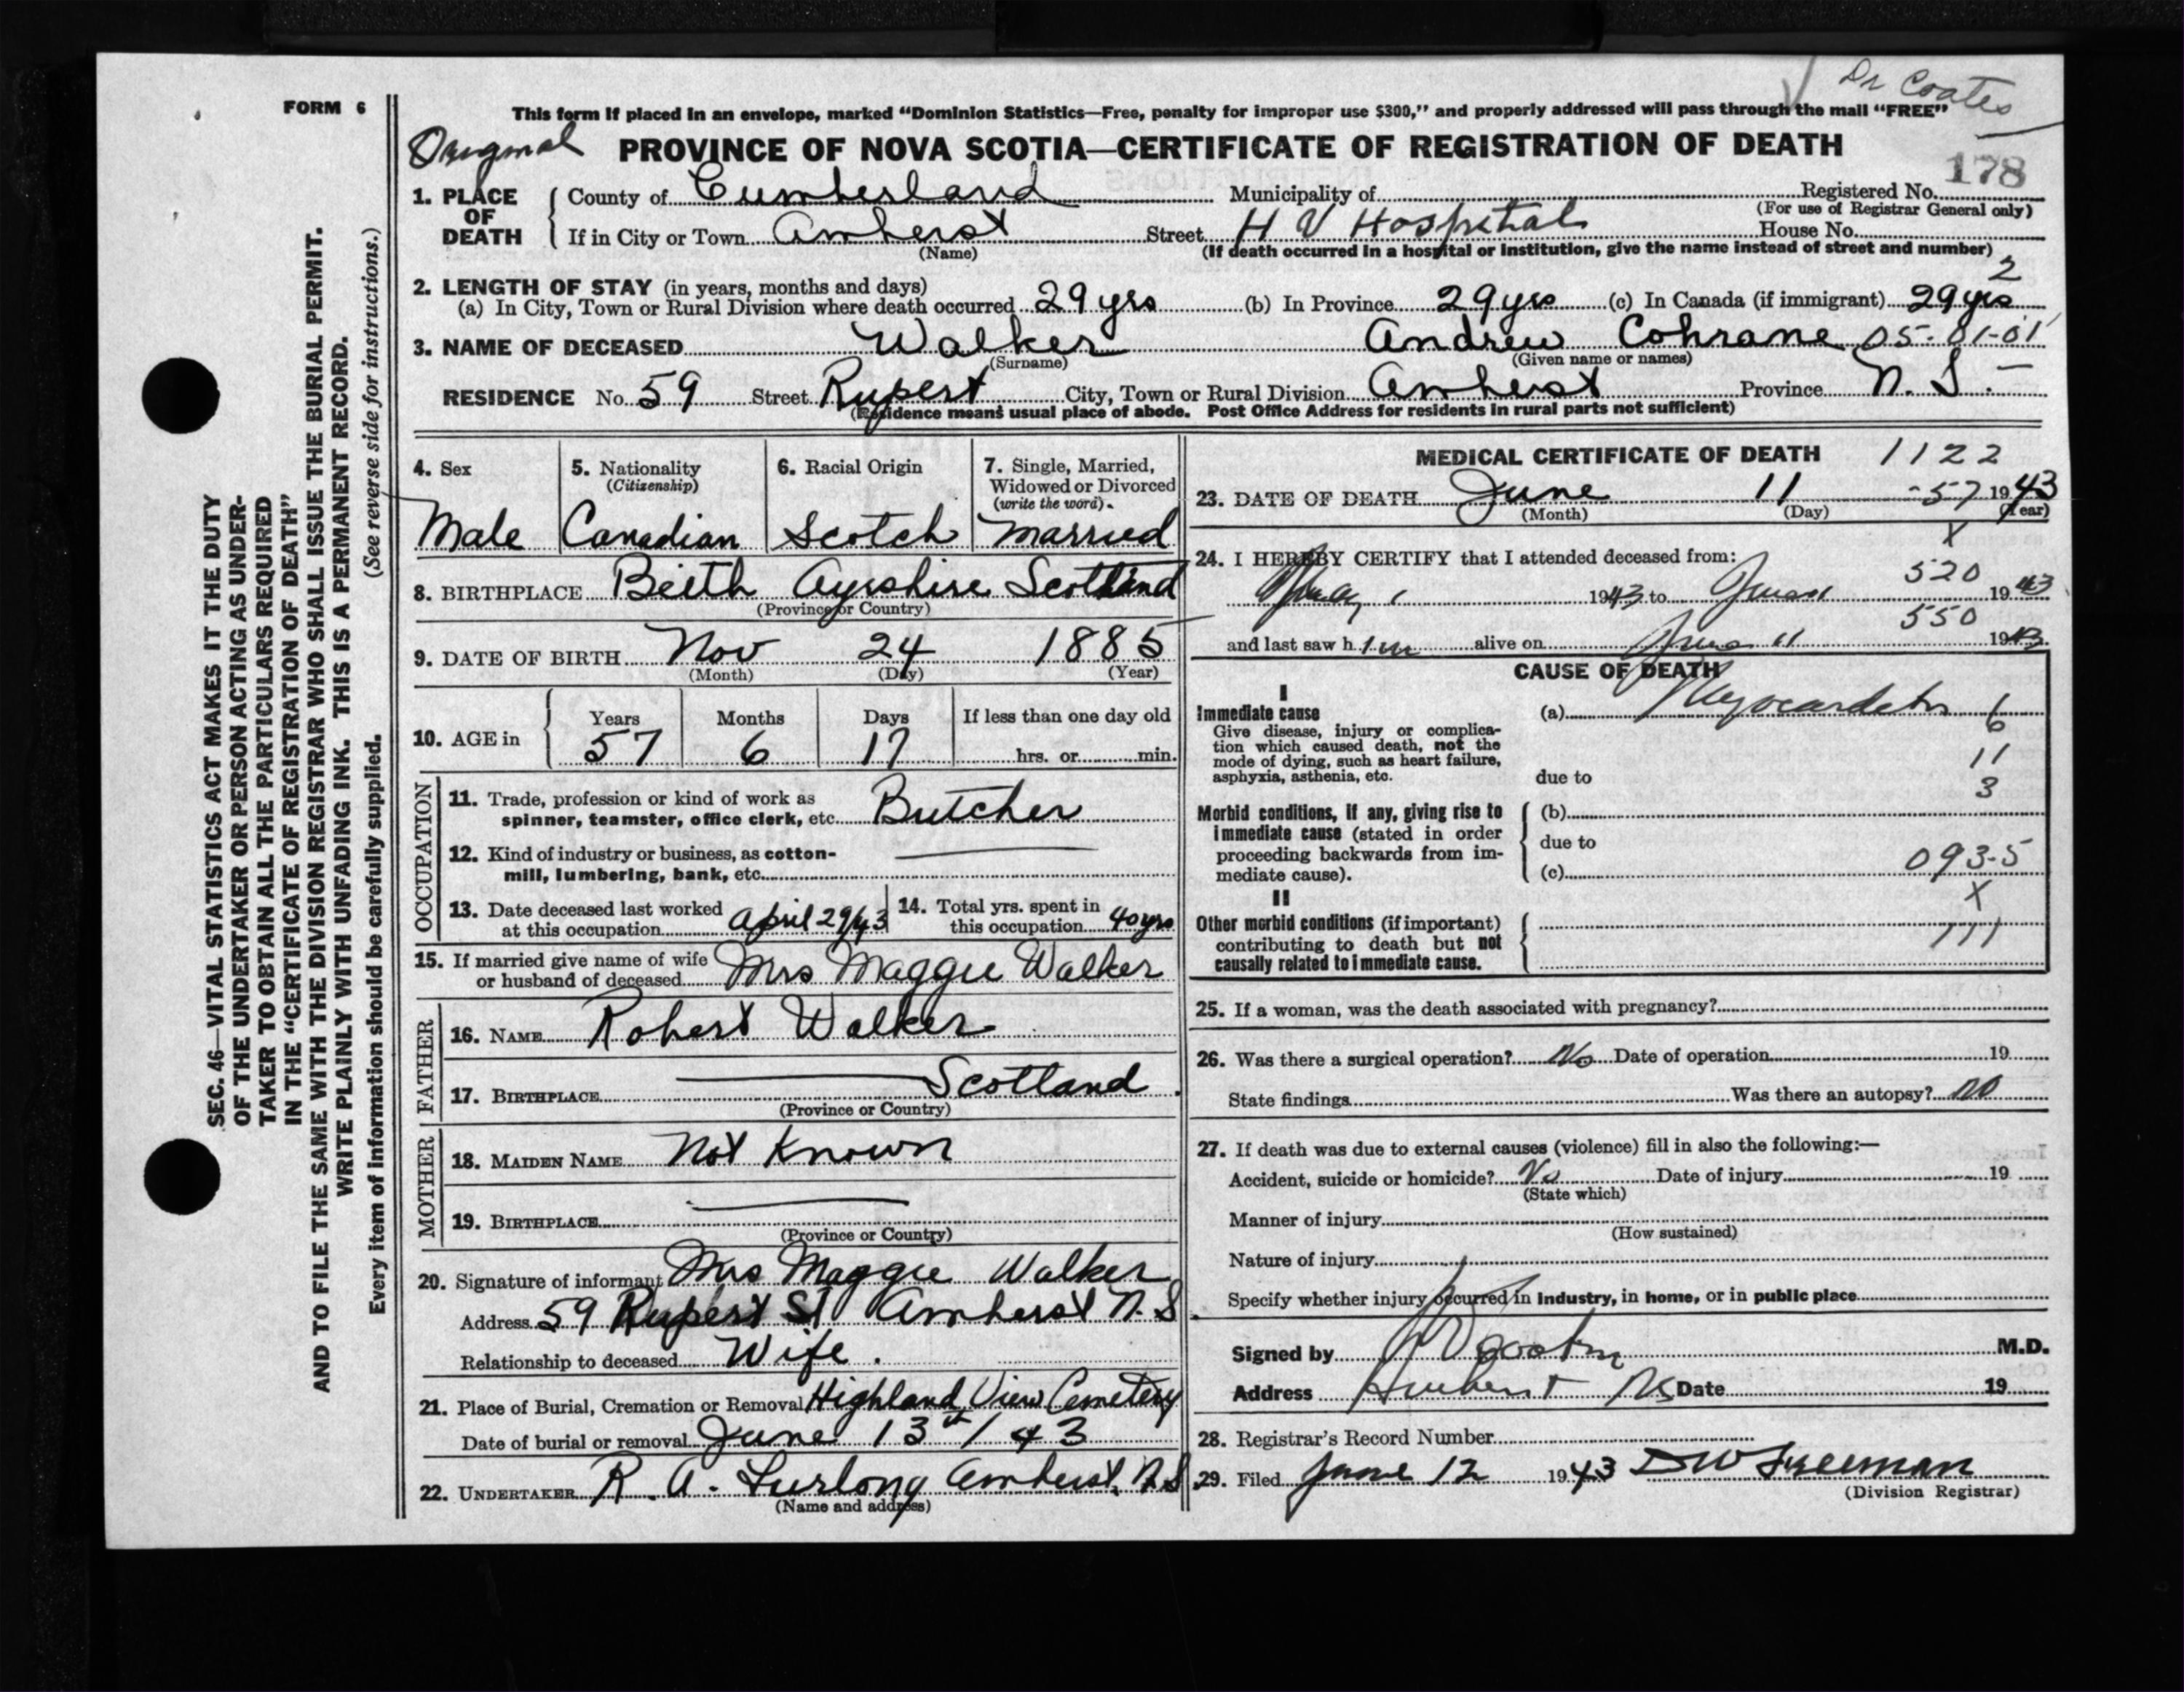 Dr Coates
FORM 6
This form if placed in an envelope, marked “Dominion Statistics—Free, penalty for improper use $300,” and properly addressed will pass through the mail “FREE”
Original PROVINCE OF NOVA SCOTIA—CERTIFICATE OF REGISTRATION OF DEATH
178
1. PLACE OF DEATH
County of Cumberland Municipality of Registered No.
(For use of Registrar General only)
If in City or Town Amherst Street H V Hospital House No.
(Name) (If death occurred in a hospital or institution, give the name instead of street and number)
2
2. LENGTH OF STAY (in years, months and days)
(a) In City, Town or Rural Division where death occurred 29 yrs (b) In Province 29 yrs (c) In Canada (if immigrant) 29 yrs
3. NAME OF DECEASED Walker Andrew Cohrane 05-01-01
(Surname) (Given name or names)
RESIDENCE No. 59 Street Rupert City, Town or Rural Division Amherst Province N. S.
(Residence means usual place of abode. Post Office Address for residents in rural parts not sufficient)
SEC. 46—VITAL STATISTICS ACT MAKES IT THE DUTY
OF THE UNDERTAKER OR PERSON ACTING AS UNDER-
TAKER TO OBTAIN ALL THE PARTICULARS REQUIRED
IN THE “CERTIFICATE OF REGISTRATION OF DEATH”
AND TO FILE THE SAME WITH THE DIVISION REGISTRAR WHO SHALL ISSUE THE BURIAL PERMIT.
WRITE PLAINLY WITH UNFADING INK. THIS IS A PERMANENT RECORD.
Every item of information should be carefully supplied. (See reverse side for instructions.)
4. Sex
Male
5. Nationality
(Citizenship)
Canadian
6. Racial Origin
Scotch
7. Single, Married,
Widowed or Divorced
(write the word).
Married
8. BIRTHPLACE Beith Ayrshire Scotland
(Province or Country)
9. DATE OF BIRTH Nov 24 1885
(Month) (Day) (Year)
10. AGE in
Years Months Days If less than one day old
57 6 17 hrs. or min.
OCCUPATION
11. Trade, profession or kind of work as
spinner, teamster, office clerk, etc. Butcher
12. Kind of industry or business, as cotton-
mill, lumbering, bank, etc.
13. Date deceased last worked
at this occupation April 29/43
14. Total yrs. spent in
this occupation 40 yrs
15. If married give name of wife
or husband of deceased Mrs Maggie Walker
FATHER
16. NAME Robert Walker
17. BIRTHPLACE Scotland
(Province or Country)
MOTHER
18. MAIDEN NAME Not Known
19. BIRTHPLACE
(Province or Country)
20. Signature of informant Mrs Maggie Walker
Address 59 Rupert St Amherst N. S.
Relationship to deceased Wife.
21. Place of Burial, Cremation or Removal Highland View Cemetery
Date of burial or removal June 13th / 43
22. UNDERTAKER R. A. Furlong Amherst. N. S.
(Name and address)
MEDICAL CERTIFICATE OF DEATH 1122
23. DATE OF DEATH June 11 -57 1943
(Month) (Day) (Year)
X
24. I HEREBY CERTIFY that I attended deceased from:
520
May 1 1943 to June 11 1943
550
and last saw him alive on June 11 1943
CAUSE OF DEATH
I
Immediate cause
Give disease, injury or complica-
tion which caused death, not the
mode of dying, such as heart failure,
asphyxia, asthenia, etc.
(a) Myocarditis 6
11
due to
3
Morbid conditions, if any, giving rise to
immediate cause (stated in order
proceeding backwards from im-
mediate cause).
(b)
due to
(c) 093-5
X
II
Other morbid conditions (if important)
contributing to death but not
causally related to immediate cause.
111
25. If a woman, was the death associated with pregnancy?
26. Was there a surgical operation? No Date of operation 19
State findings Was there an autopsy? no
27. If death was due to external causes (violence) fill in also the following:—
Accident, suicide or homicide? No Date of injury 19
(State which)
Manner of injury
(How sustained)
Nature of injury
Specify whether injury occurred in industry, in home, or in public place
Signed by M.D.
Address Amherst NS Date 19
28. Registrar’s Record Number
29. Filed June 12 1943 D W Freeman
(Division Registrar)